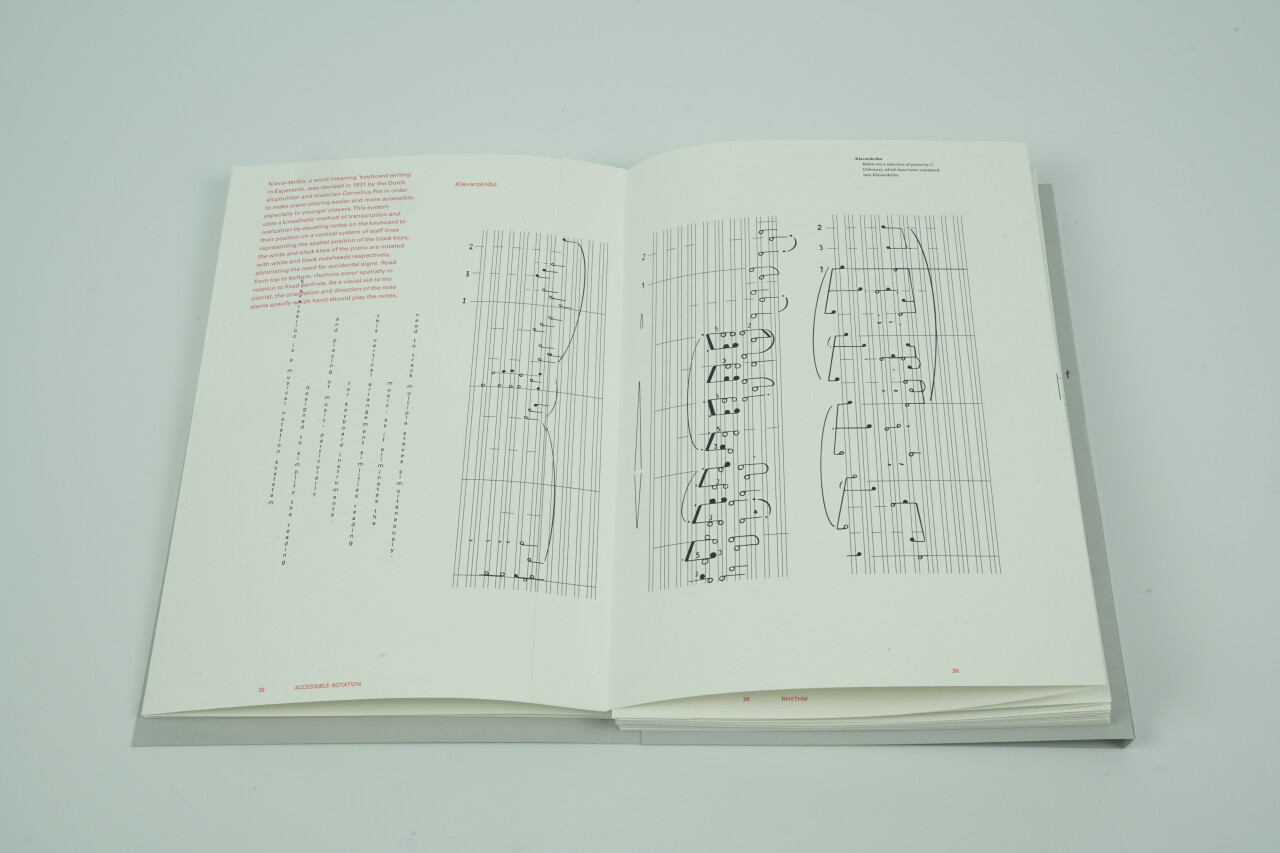 Klavarskribo, a word meaning 'keyboard writing'
in Esperanto, was devised in 1931 by the Dutch
shipbuilder and musician Cornelius Pot in order
to make piano playing easier and more accessible,
especially to younger players. This system
uses a kinesthetic method of transcription and
realization by equating notes on the keyboard to
their position on a vertical system of staff lines
representing the spatial position of the black keys;
the white and black keys of the piano are notated
with white and black noteheads respectively,
eliminating the need for accidental signs. Read
from top to bottom, rhythms occur spatially in
relation to fixed barlines. As a visual aid to the
pianist, the orientation and direction of the note
stems specify which hand should play the notes.
Klavarskribo is a musical notation systetam
designed to simplify the reading
and playing of music, particularly
for keyboard instruments.
this vertical arrangement simplifies reading
music, as it eliminates the
need to track multiple staves simultanously.
Klavarskribo
2
3
1
35 ACCESSIBLE NOTATION
Klavarskribo.
Below are a selection of pieces by C.
Debussey which have been translated
into Klavarskribo.
2
1
5 2
3
3
5
3
3
5 3
3
2
3
1
f
36
36 RHYTHM